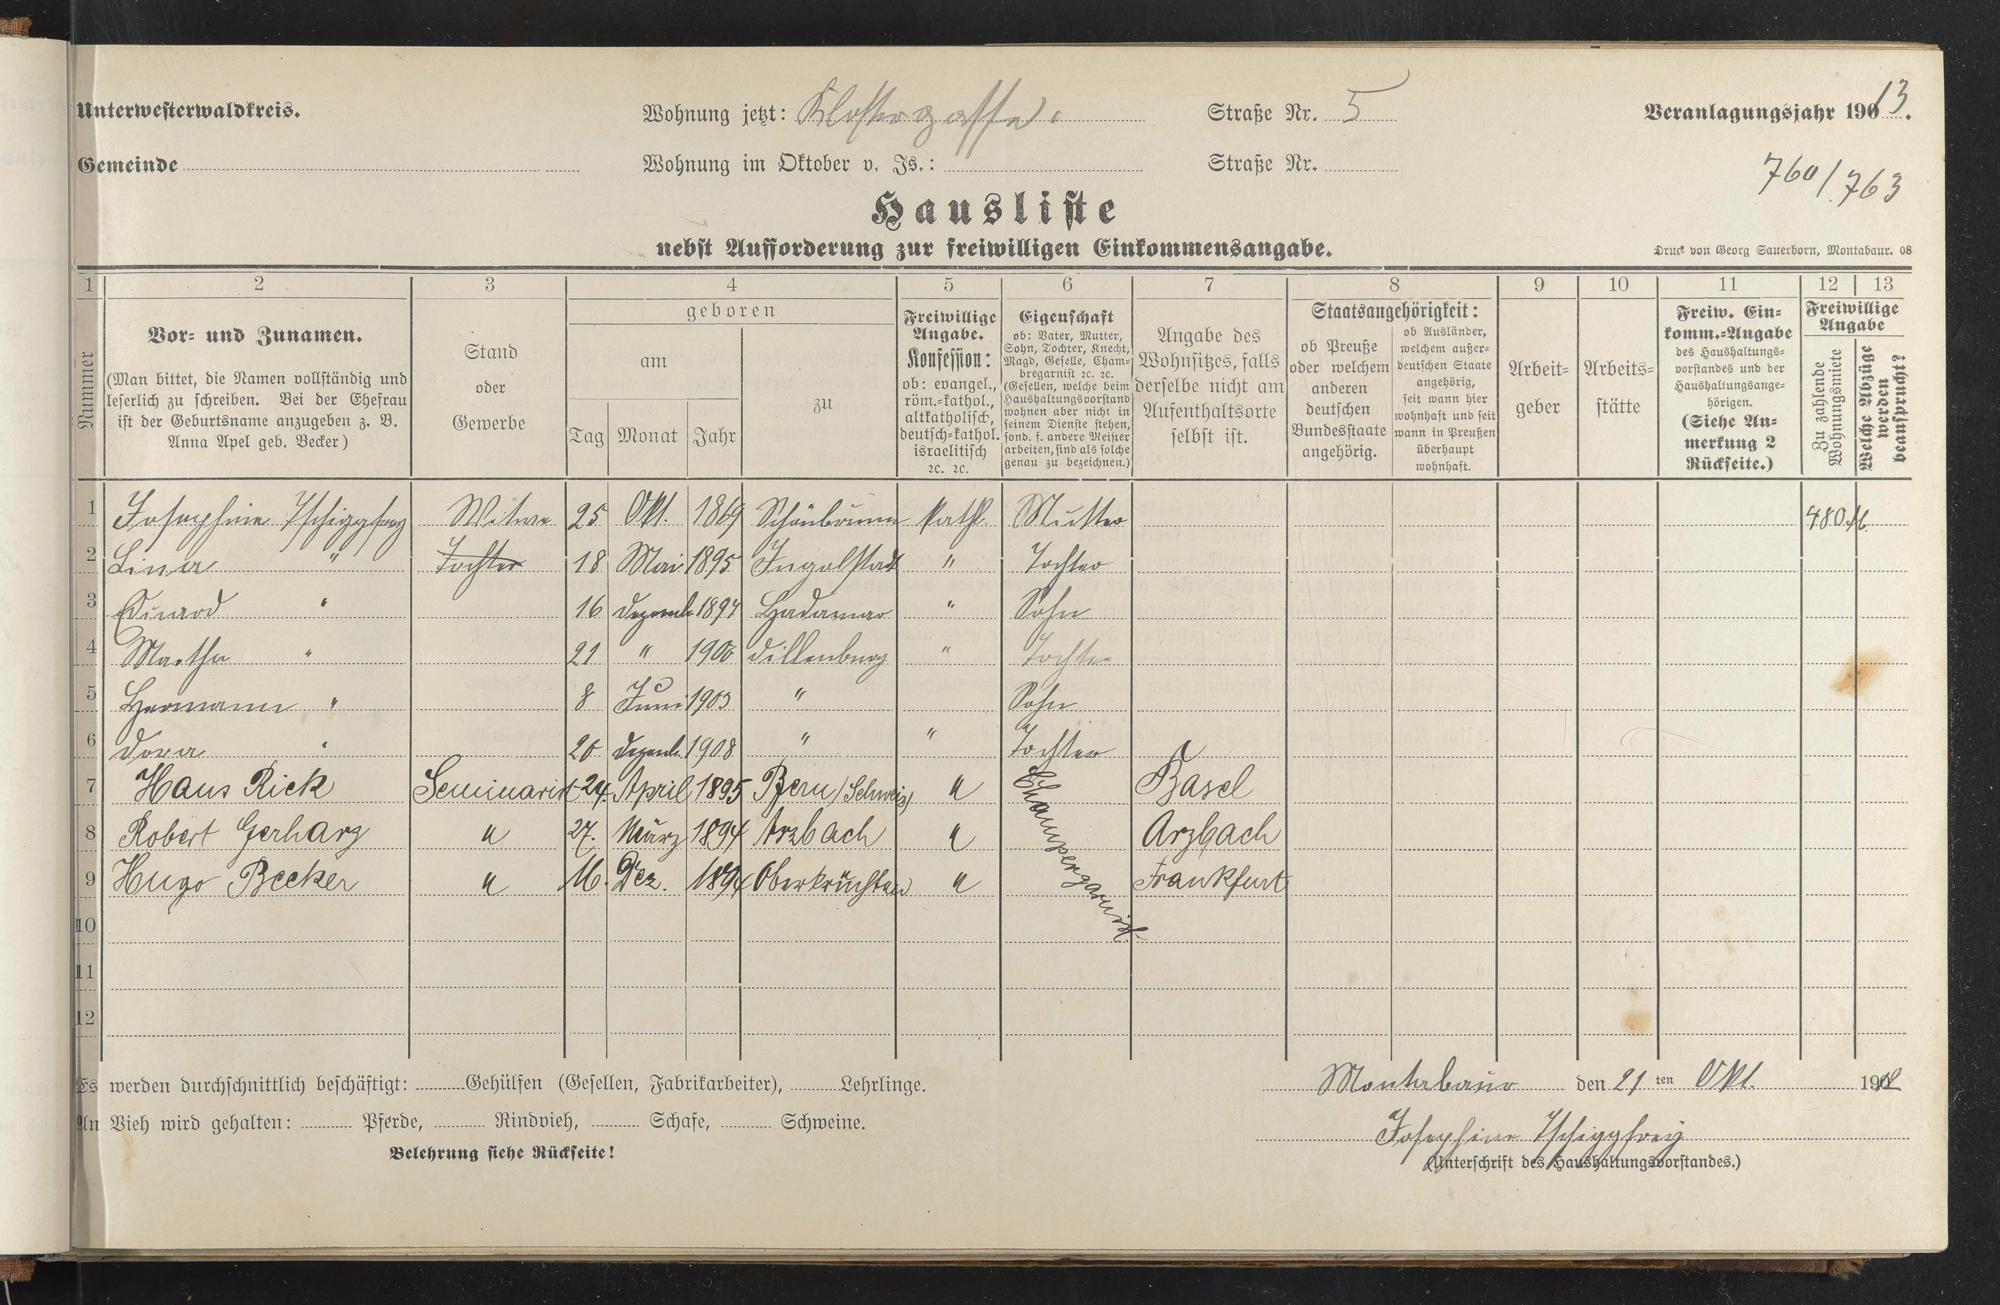 Unterwesterwaldkreis.
Wohnung jetzt: Klostergasse. Straße Nr. 5
Veranlagungsjahr 1913.
Gemeinde
Wohnung im Oktober v. Js.: Straße Nr.
760/763
Hausliste
nebst Aufforderung zur freiwilligen Einkommensangabe.
Druck von Georg Sauerborn, Montabaur. 08
1 2 3 4 5 6 7 8 9 10 11 12 13
Nummer
Vor- und Zunamen.
(Man bittet, die Namen vollständig und
leserlich zu schreiben. Bei der Ehefrau
ist der Geburtsname anzugeben z. B.
Anna Apel geb. Becker)
Stand
oder
Gewerbe
geboren
am
Tag Monat Jahr
zu
Freiwillige
Angabe.
Konfession:
ob: evangel.,
röm.-kathol.,
altkatholisch,
deutsch-kathol.
israelitisch
ꝛc. ꝛc.
Eigenschaft
ob: Vater, Mutter,
Sohn, Tochter, Knecht,
Magd, Geselle, Cham-
bregarnist ꝛc. ꝛc.
(Gesellen, welche beim
Haushaltungsvorstand
wohnen aber nicht in
seinem Dienste stehen,
sond. f. andere Meister
arbeiten, sind als solche
genau zu bezeichnen.)
Angabe des
Wohnsitzes, falls
derselbe nicht am
Aufenthaltsorte
selbst ist.
Staatsangehörigkeit:
ob Preuße
oder welchem
anderen
deutschen
Bundesstaate
angehörig.
ob Ausländer,
welchem außer-
deutschen Staate
angehörig,
seit wann hier
wohnhaft und seit
wann in Preußen
überhaupt
wohnhaft.
Arbeit-
geber
Arbeits-
stätte
Freiw. Ein-
komm.-Angabe
des Haushaltungs-
vorstandes und der
Haushaltungsange-
hörigen.
(Siehe An-
merkung 2
Rückseite.)
Freiwillige
Angabe
Zu zahlende
Wohnungsmiete
Welche Abzüge
werden
beansprucht?
1 Josephine Tschiggfrey Witwe 25 Okt. 1869 Schönbrunn kath. Mutter 480 M.
2 Lina " Tochter 18 Mai 1895 Ingolstadt " Tochter
3 Eduard " 16 Dezemb. 1897 Hadamar " Sohn
4 Martha " 21 " 1900 Dillenburg " Tochter
5 Hermann " 8 Juni 1903 " Sohn
6 Dora " 20 Dezemb. 1908 " " Tochter
7 Hans Rick Seminarist 24. April 1895 Bern (Schweiz) " Chambergarnist. Basel
8 Robert Gerharz " 27. März 1894 Arzbach " Arzbach
9 Hugo Becker " 16. Dez. 1894 Oberkrüchten " Frankfurt
10
11
12
Es werden durchschnittlich beschäftigt: Gehülfen (Gesellen, Fabrikarbeiter), Lehrlinge.
Montabaur den 21 ten Okt. 1912
An Vieh wird gehalten: Pferde, Rindvieh, Schafe, Schweine.
Josephine Tschiggfrey
Belehrung siehe Rückseite!
(Unterschrift des Haushaltungsvorstandes.)